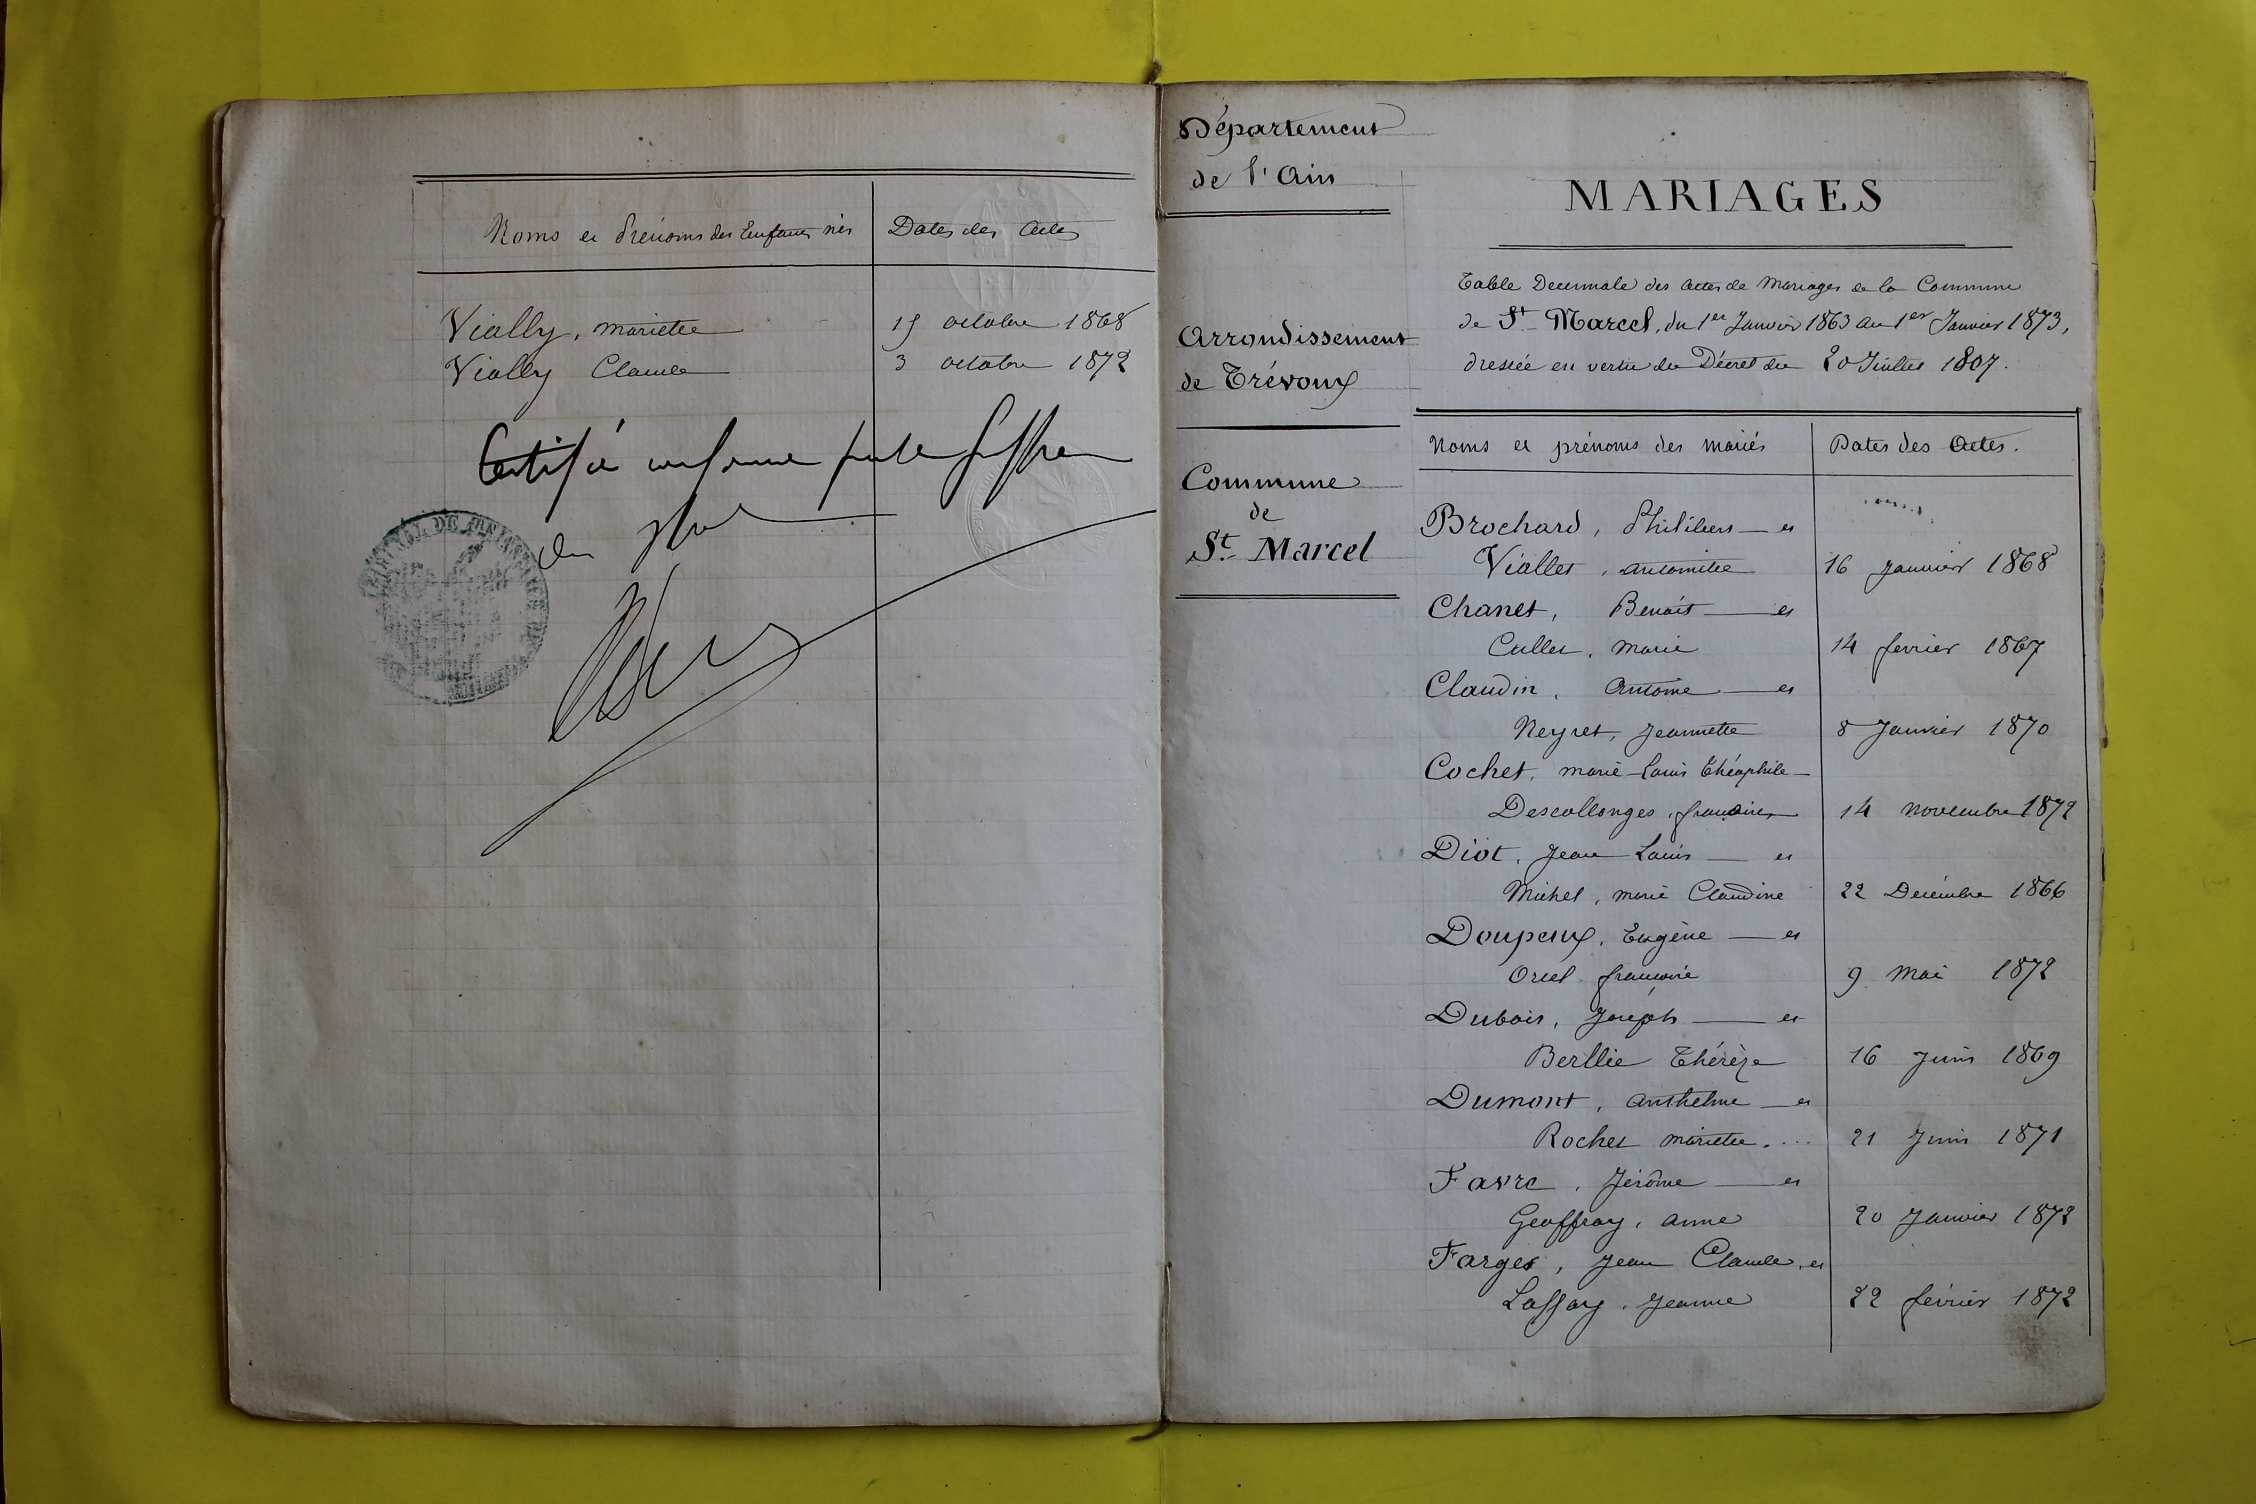 Noms et Prénoms des Enfants nés
Dates des Actes
Vially, mariette 15 octobre 1868
Vially Claude 3 octobre 1872
Certifié conforme par le Greffier
TRIBUNAL DE
Département
de l'Ain
Arrondissement
de Trévoux
Commune
de
St. Marcel
MARIAGES
Table Decennale des actes de Mariages de la Commune
de St Marcel, du 1er Janvier 1863 au 1er Janvier 1873,
dressée en vertu du Décret du 20 Juillet 1807.
Noms et prénoms des mariés
Dates des Actes.
Brochard, Philibert et
Viallet, antoinette 16 Janvier 1868
Chanet, Benoit et
Cullet, marie 14 fevrier 1867
Claudin, Antoine et
Neyret, Jeannette 8 Janvier 1870
Cochet, marie Louis Théophile
Descollonges, 14 novembre 1872
Diot, Jean Louis et
Michel, marie Claudine 22 Décembre 1866
Doupeux, Eugène et
Orcel françoise 9 Mai 1872
Dubois, Joseph et
Berllie Thérèze 16 Juin 1869
Dumont, anthelme et
Rochet mariette 21 Juin 1871
Favre, Jérôme et
Geoffray, anne 20 Janvier 1872
Farges, Jean Claude, et
Laffay, Jeanne 22 février 1872